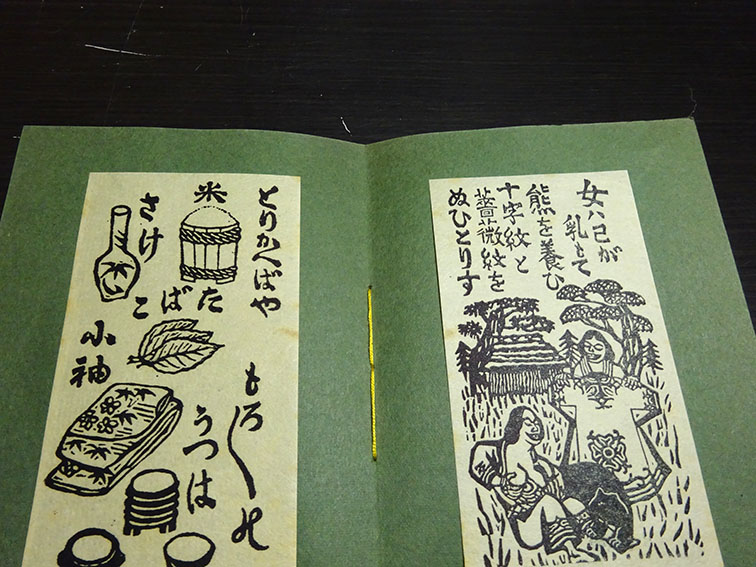 女ハ己が
乳もて
熊を養ひ
十字紋と
薔薇紋を
ぬひとりす
とりかへばや
米
さけ
たばこ
小袖
もろ〳〵の
うつは